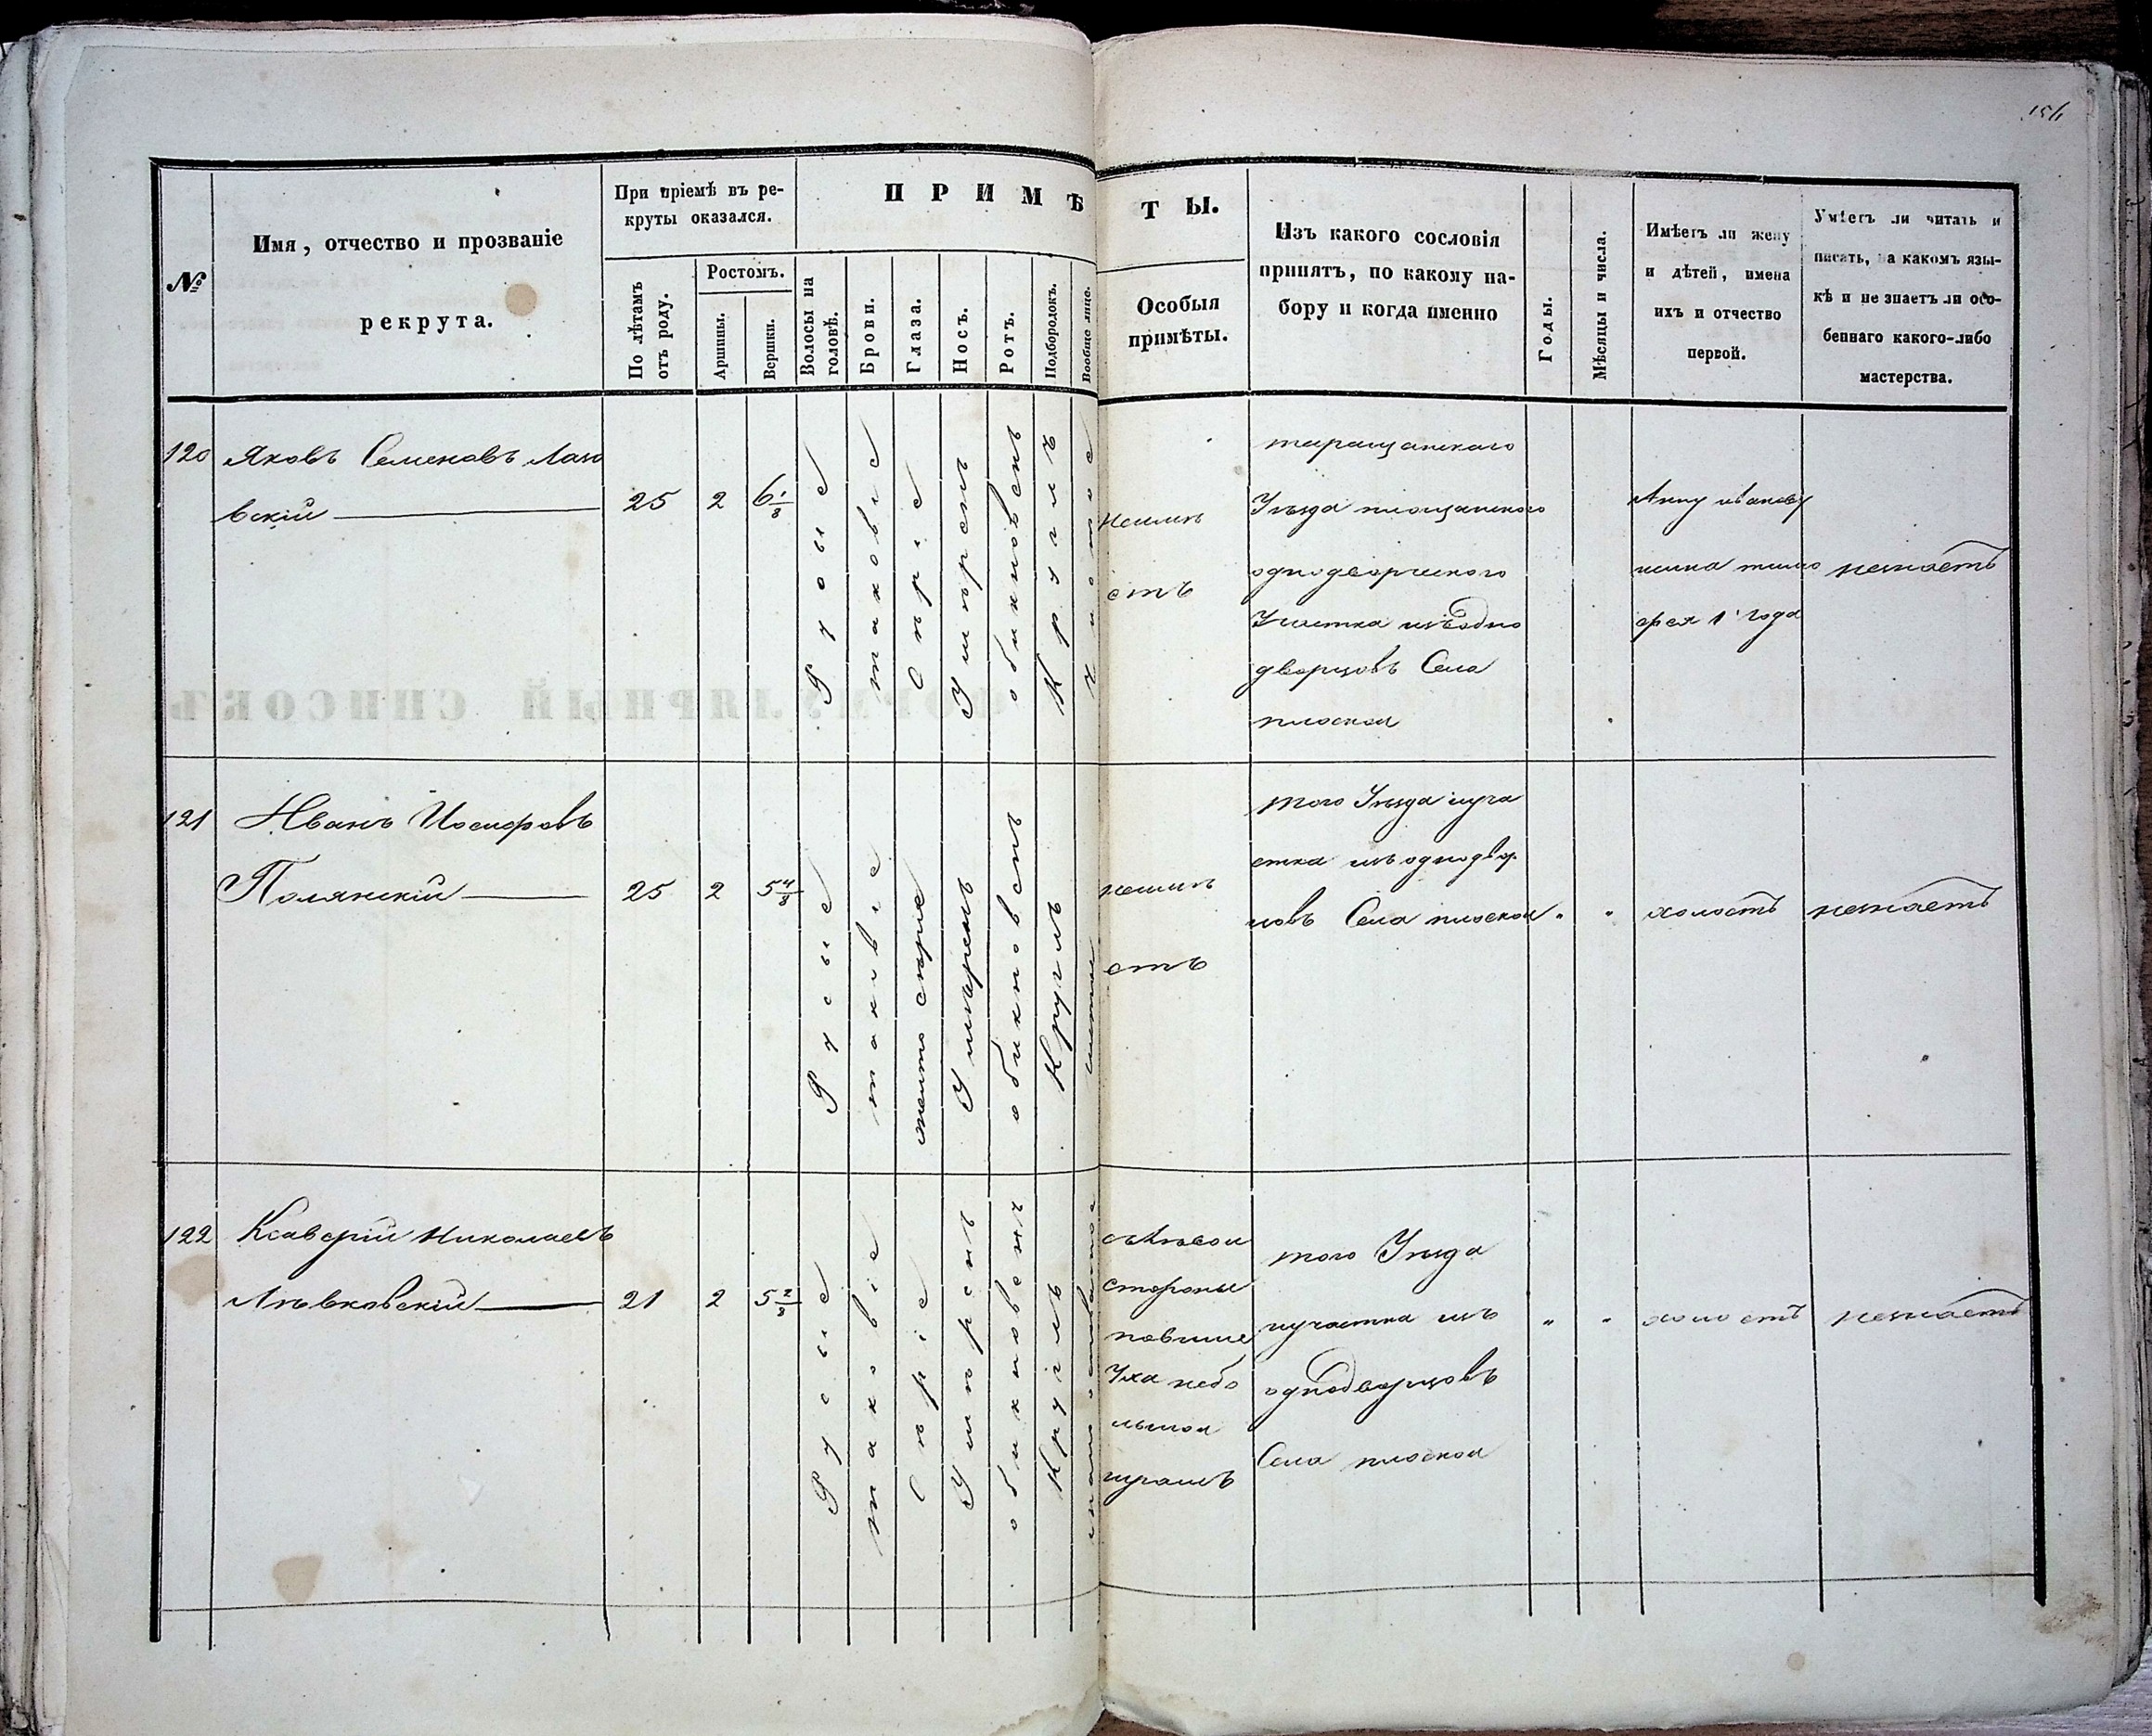 №
Имя, отчество и прозваніе
рекрута.
При пріемѣ въ ре-
круты оказался.
По лѣтамъ
отъ роду.
Ростомъ.
Аршины.
Вершки.
ПРИМѢ
ТЫ.
Волосы на
головѣ.
Брови.
Глаза.
Носъ.
Ротъ.
Подбородокъ.
Вообще лице.
Особыя
примѣты.
Изъ какого сословія
принятъ, по какому на-
бору и когда именно
Годы.
Мѣсяцы и числа.
Имѣетъ ли жену
и дѣтей, имена
ихъ и отчество
первой.
Умѣетъ ли читать и
писать, на какомъ язы-
кѣ и не знаетъ ли осо-
беннаго какого-либо
мастерства.
120
Яковъ Семеновъ
вскій
25
2
6 1/8
Русые
таковіе
Сѣріе
Умѣренъ
обикновенъ
Круглъ
чистое
неимѣ
етъ
таращанского
Уѣзда
однодворческого
Участка изъ одно
дворцовъ Села
плоской
Анну
1 года
незнаетъ
121
Иванъ Иосифовъ
Полянскій
25
2
5 4/8
Русые
таковіе
желто сѣріе
Умѣренъ
обикновенъ
Круглъ
чистое
неимѣ
етъ
того Уѣзда иуча
стка изъ однодвор
цовъ Села плоской
"
"
холостъ
незнаетъ
122
Ксаверій Николаевъ
Лѣвковскій
21
2
5 2/8
Русые
таковіе
Сѣріе
Умѣренъ
обикновенъ
Круглъ
съ лѣвой
стороны
повише
Уха небо
льшой
шрамъ
того Уѣзда
иучастка изъ
однодворцовъ
Села плоской
"
"
холостъ
незнаетъ